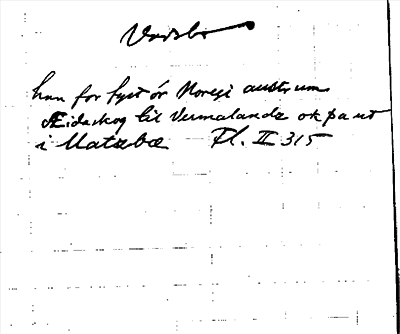 Vadsbo
hann for fyst ór Noregi austr um
Æidaskog til Vermalandz ok þa ut
i Uatzbœ Fl. II 315